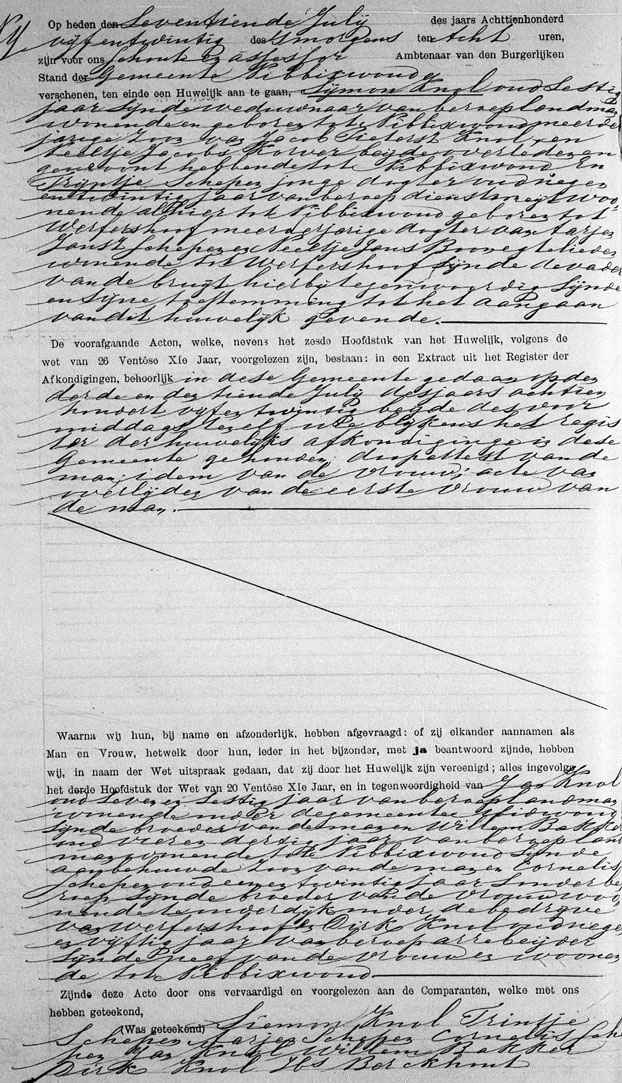 Op heden den Seventiende July des jaars Achttjenhonderd
vijf en twintig des Smorgens ten Acht uren,
zijn voor ons Schout en Ambtenaar van den Burgerlijken
Stand der Gemeente Nibbixwoude
verschenen, ten einde een Huwelijk aan te gaan, Symon Knol oud Sestig
jaar Synde weduwnaar van beroep landman
woonende en geboren tot Nibbixwoud meerder
jarige Zoon van Jacob Pieters Knol en
Neeltje Jacobs Koster beijde overleden en
gewoont hebbende tot Nibbixwoud En
Trijntje Schepen jonge dogter oud negen
en twintig jaar van beroep dienstmeijt woo-
nende alhier tot Nibbixwoud geboren tot
Werfershoof meerderjarige dogter van Aarjen
Jansz Schepen en Neeltje Jans egtelieden
woonende tot Werfershoof Synde de vader
van de bruyt hierby tegenwoordig Synde
en Syne toestemming tot het aangaan
van dit huwelijk gevende.
De voorafgaande Acten, welke, nevens het zesde Hoofdstuk van het Huwelijk, volgens de
wet van 26 Ventôse XIe Jaar, voorgelezen zijn, bestaan: in een Extract uit het Register der
Afkondigingen, behoorlijk in dese Gemeente gedaan op den
derde en den tiende July des jaers achtien
hondert vijf en twintig beijde des voor
middags ten elf ure blykens het regis
ter der huwelijks afkondiginge in dese
Gemeente gehouden, doopattest van de
man, idem van de vrouw, acte van
overlijden van de eerste vrouw van
de man.
Waarna wij hun, bij name en afzonderlijk, hebben afgevraagd: of zij elkander aannamen als
Man en Vrouw, hetwelk door hun, ieder in het bijzonder, met ja beantwoord zijnde, hebben
wij, in naam der Wet uitspraak gedaan, dat zij door het Huwelijk zijn vereenigd; alles ingevolge
het derde Hoofdstuk der Wet van 20 Ventôse XIe Jaar, en in tegenwoordigheid van Jan Knol
oud Seven en Sestig jaar van beroep landman
woonende onder de gemeente
Synde broeder van de man en Willem Bakker
oud vier en dertig jaar van beroep land
man woonende tot Nibbixwoud Synde
aanbehuwde Zoon van de man en Cornelis
Schepen oud een en twintig jaar Sonder be
roep Synde broeder van de vrouw woo
nende te onderdijk onder de bedrijve
van Werfershoof en Dirk Knol oud negen
en vijftig jaar van beroep arrebeijder
Synde neef van de vrouw en woonen
de tot Nibbixwoud
Zijnde deze Acte door ons vervaardigd en voorgelezen aan de Comparanten, welke met ons
hebben geteekend,
(Was geteekend) Siemon Knol Trintje
Schepen Aarjen Schepen Cornelis Sche
pen Jan Knol Willem Bakker
Dirk Knol Ybs Berckhout